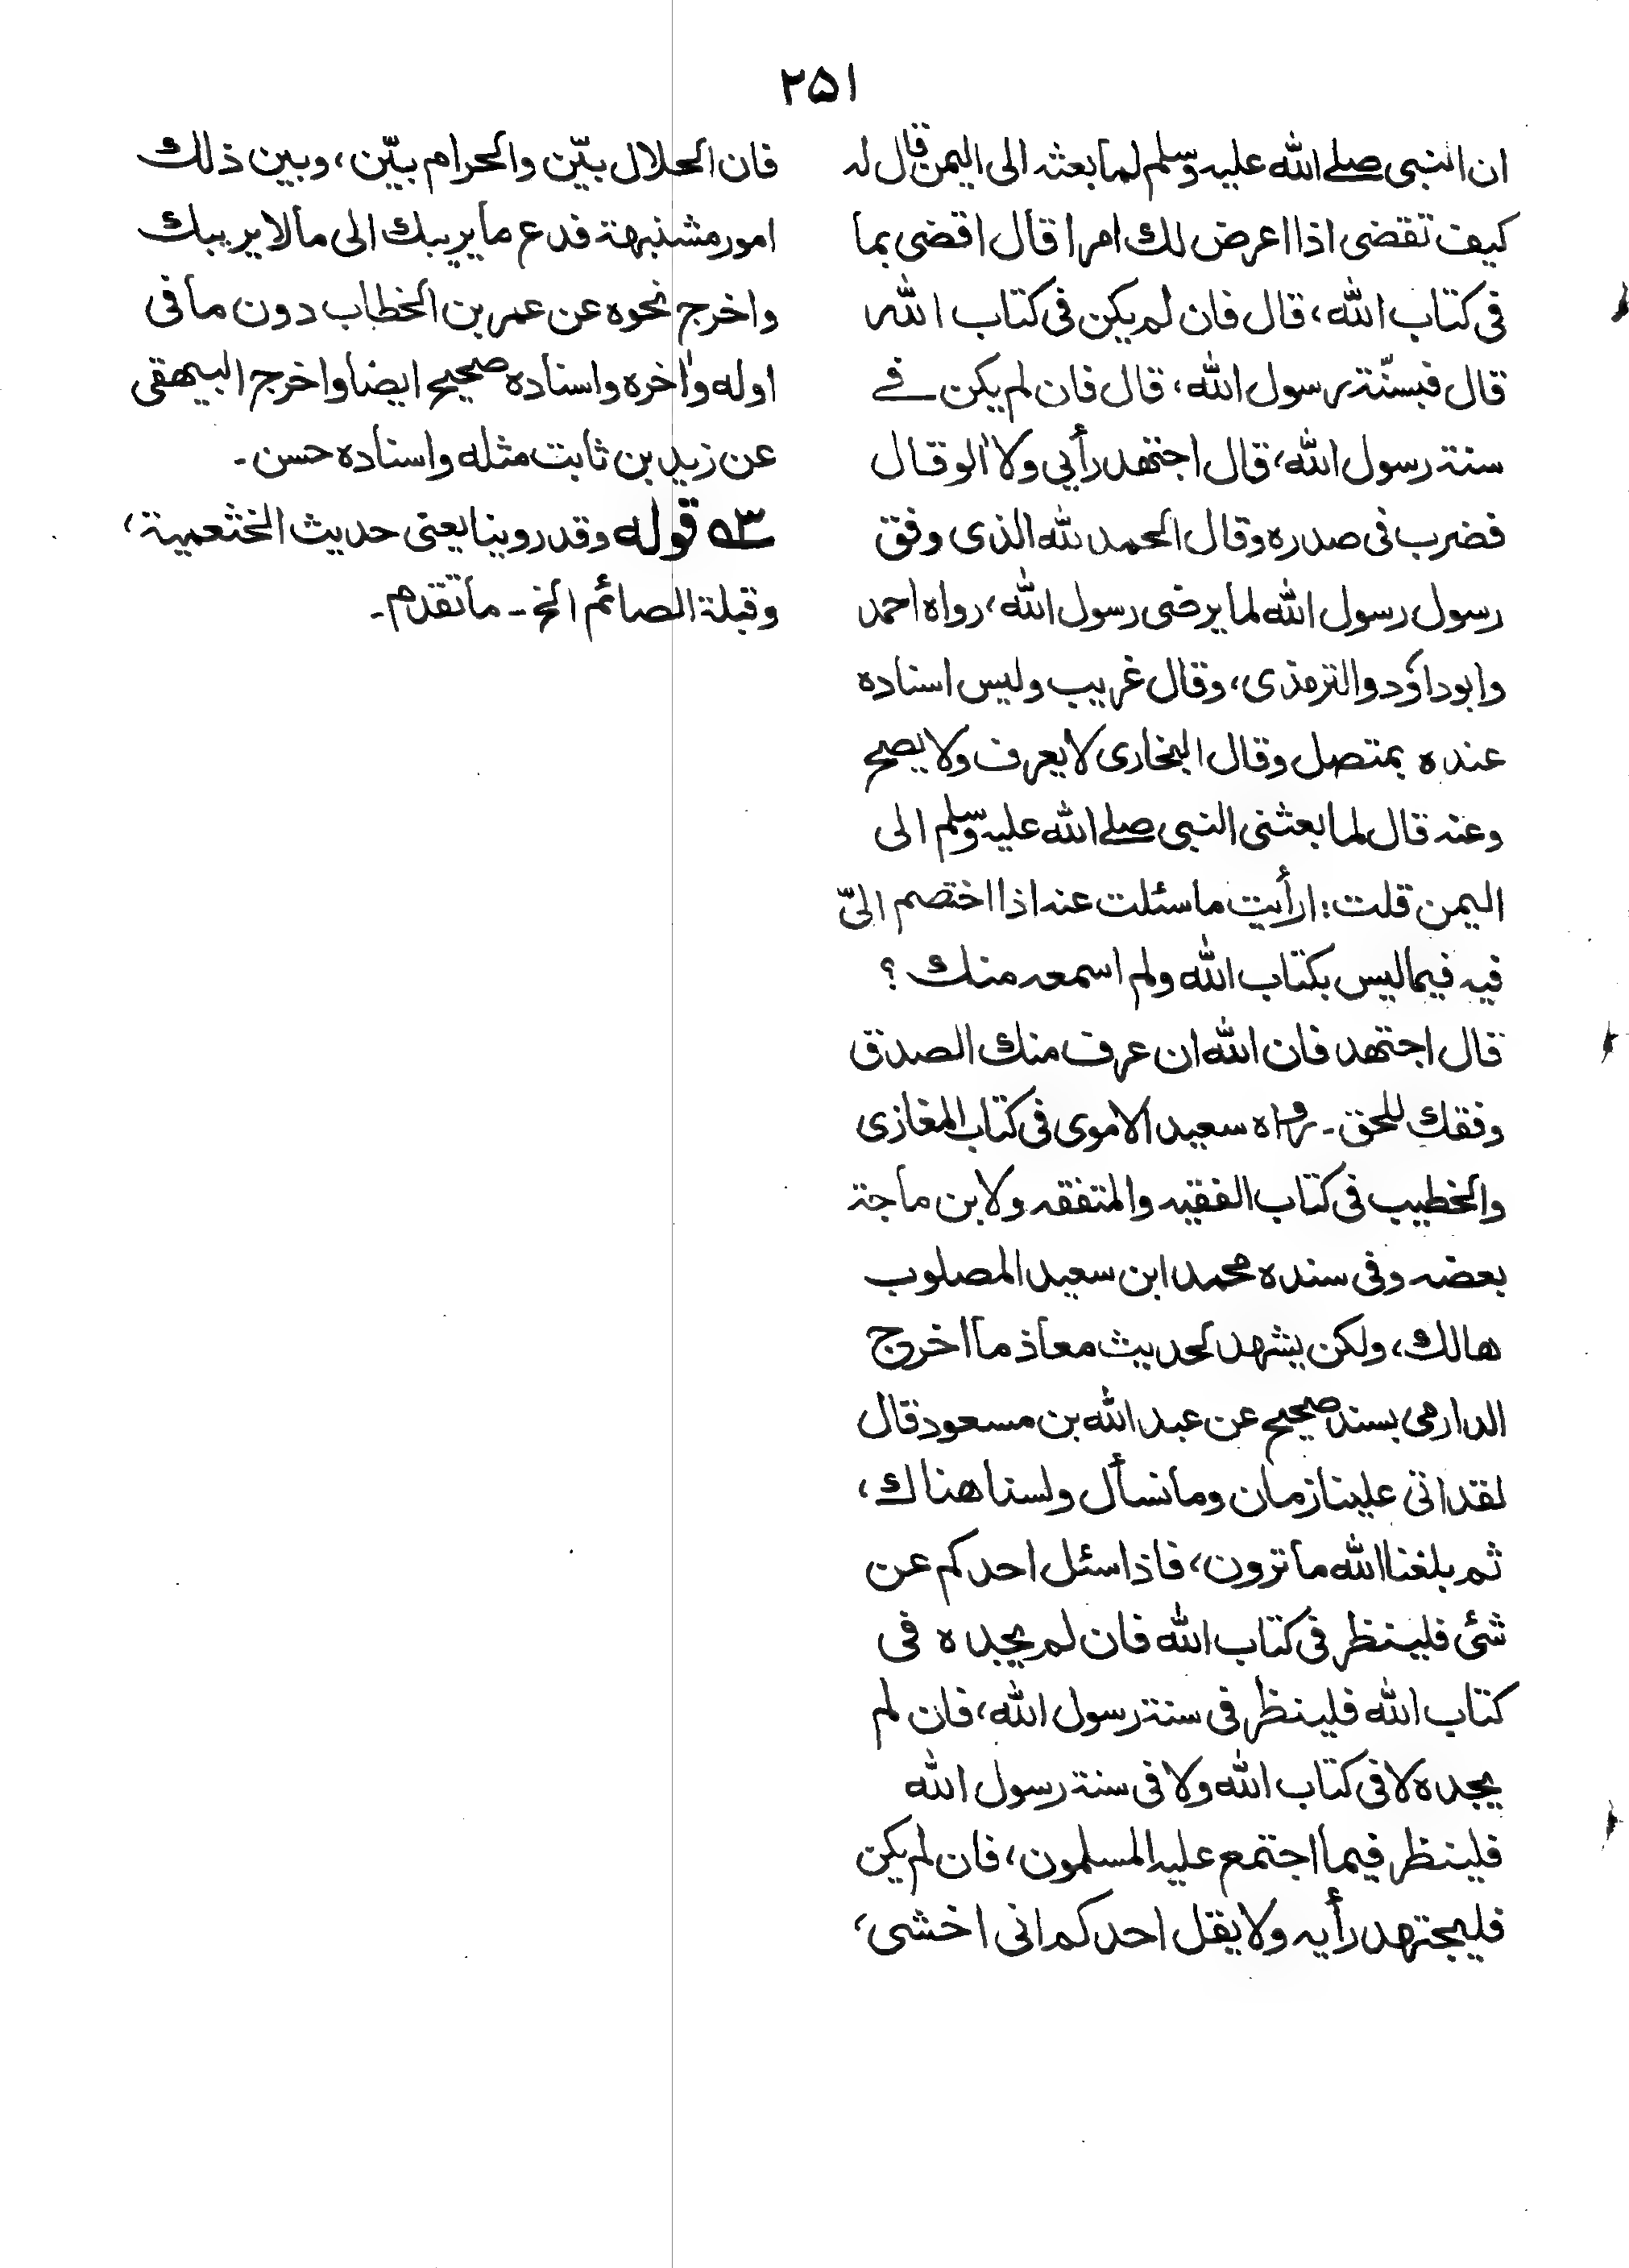 ۲۵۱
ان النبی صلے اللہ علیہ وسلم لما بعثہ الی الیمن قال لہ
کیف تقضی اذا اعرض لك امرا قال اقضی بما
فی کتاب اللہ، قال فان لم یکن فی کتاب اللہ
قال فبسنّۃ رسول اللہ، قال فان لم یکن فے
سنۃ رسول اللہ، قال اجتھد رأیی ولا اٰلو قال
فضرب فی صدرہ وقال الحمد للہ الذی وفق
رسول رسول اللہ لما یرضی رسول اللہ، رواہ احمد
وابوداؤد والترمذی، وقال غریب ولیس اسنادہ
عندہ بمتصل وقال البخاری لا یعرف ولا یصح
وعنہ قال لما بعثنی النبی صلے اللہ علیہ وسلم الی
الیمن قلت: ارأیت ما سئلت عنہ اذا اختصم الیّ
فیہ فیما لیس بکتاب اللہ ولم اسمعہ منك ؟
قال اجتھد فان اللہ ان عرف منك الصدق
وفقك للحق۔ رواہ سعید الاموی فی کتاب المغازی
والخطیب فی کتاب الفقیہ والمتفقہ ولابن ماجۃ
بعضہ وفی سندہ محمد ابن سعید المصلوب
ھالك، ولکن یشھد لحدیث معاذ ما اخرج
الدارمی بسند صحیح عن عبد اللہ بن مسعود قال
لقد اتی علینا زمان وما نسأل ولسنا ھناك،
ثم بلغنا اللہ ما ترون، فاذا سئل احدکم عن
شئی فلینظر فی کتاب اللہ فان لم یجدہ فی
کتاب اللہ فلینظر فی سنۃ رسول اللہ، فان لم
یجدہ لا فی کتاب اللہ ولا فی سنۃ رسول اللہ
فلینظر فیما اجتمع علیہ المسلمون، فان لم یکن
فلیجتھد رأیہ ولا یقل احدکم انی اخشی،
فان الحلال بیّن والحرام بیّن، وبین ذلك
امور مشتبھۃ فدع ما یریبك الی ما لا یریبك
واخرج نحوہ عن عمر بن الخطاب دون ما فی
اولہ واٰخرہ واسنادہ صحیح ایضا واخرج البیھقی
عن زید بن ثابت مثلہ واسنادہ حسن۔
۵۳ قولہ وقد روینا یعنی حدیث الخثعمیۃ،
وقبلۃ الصائم الخ۔ ما تقدم۔